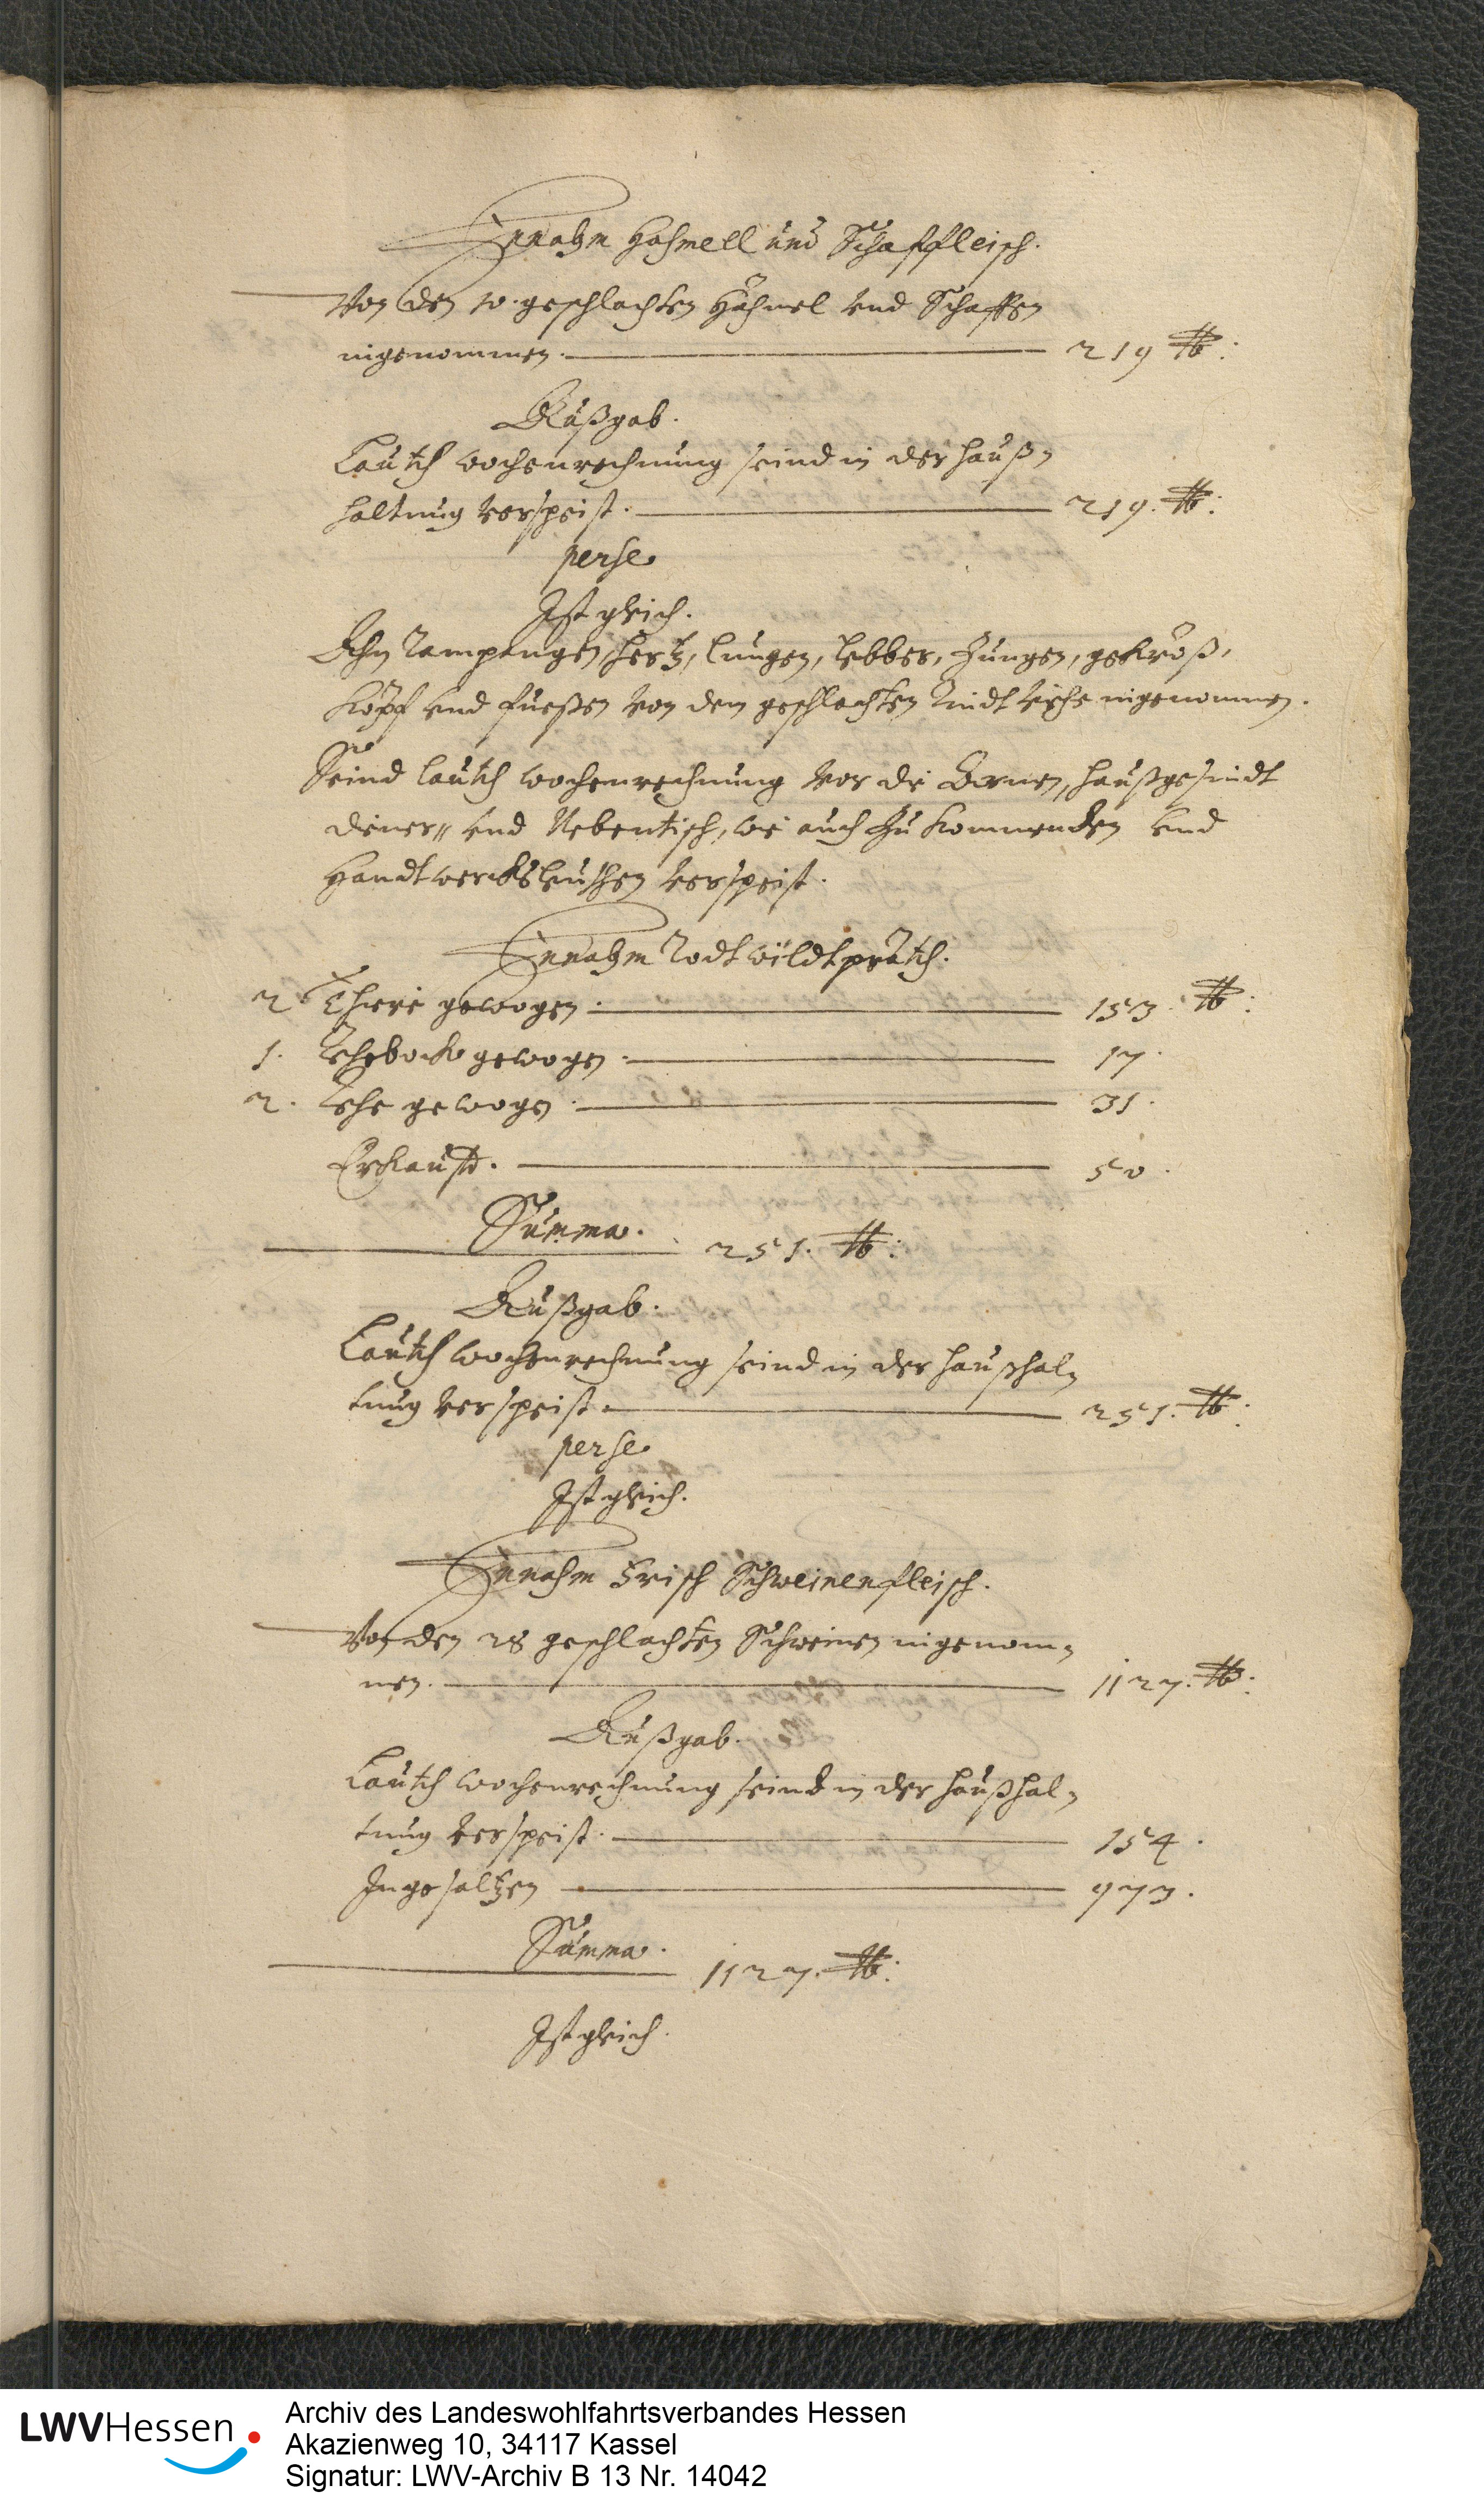 Innahm Hahmell und Schaffleisch.
Von den 10. geschlachten Hähmel vnd Schaffen
ingenommen. 219 ℔:
Außgab.
Lautt wochenrechnung seind in der hauß-
haltung verspeist. 219. ℔:
perse
Ist gleich.
Ahn hertz, lungen, lebber, Zungen, gekröß,
köpf vnd fueßen von dem geschlachten Rindt viehe ingenommen.
Seind lautt wochenrechnung vor die Armen, haußgesindt
diener= vnd Nebentisch, wie auch zu kommenden vnd
Handtwercksleuthen verspeist.
Innahm Rodt wildtprätt.
2 Thiere gewogen. 153. ℔:
1. Rehebock gewogen. 17.
2. Rehe gewogen. 31.
Erkaufft. 50.
Summa. 251. ℔:
Außgab.
Lautt wochenrechnung seind in der haußhal-
tung verspeist. 251. ℔:
perse
Ist gleich.
Innahm Frisch Schweinenfleisch.
Von den 28 geschlachten Schweinen ingenom-
men. 1127. ℔:
Außgab.
Lautt wochenrechnung seind in der haußhal-
tung verspeist. 154.
Ingesaltzen 973.
Summa. 1127. ℔:
Ist gleich.
LWVHessen
Archiv des Landeswohlfahrtsverbandes Hessen
Akazienweg 10, 34117 Kassel
Signatur: LWV-Archiv B 13 Nr. 14042